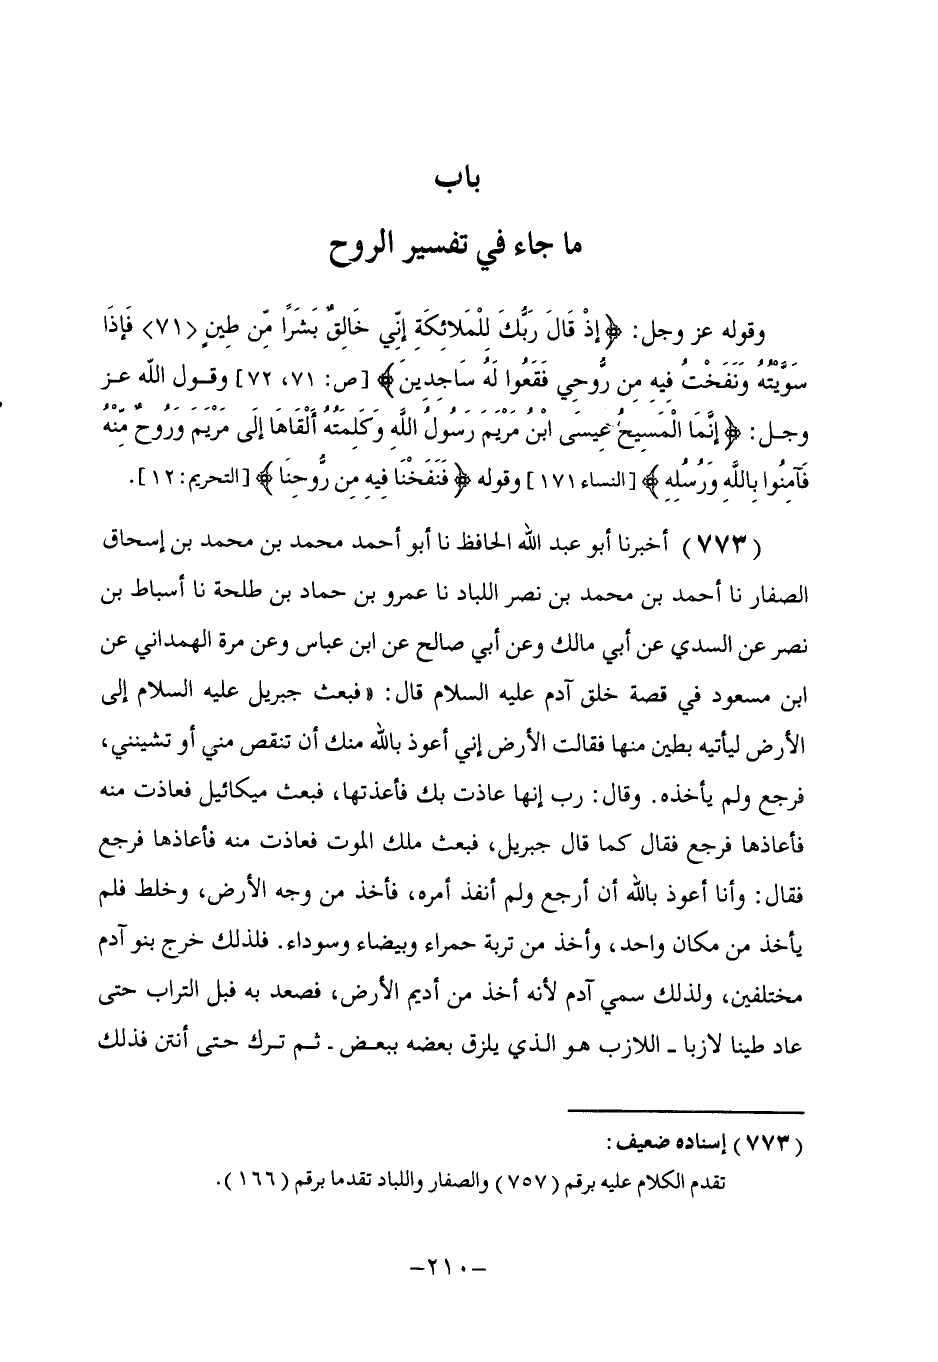 باب
ما جاء في تفسير الروح
وقوله عز وجل: ﴿إِذْ قَالَ رَبُّكَ لِلْمَلائِكَةِ إِنِّي خَالِقٌ بَشَرًا مِّن طِينٍ <٧١> فَإِذَا
سَوَّيْتُهُ وَنَفَخْتُ فِيهِ مِن رُّوحِي فَقَعُوا لَهُ سَاجِدِينَ﴾ [ص: ٧١، ٧٢] وقول الله عز
وجل: ﴿إِنَّمَا الْمَسِيحُ عِيسَى ابْنُ مَرْيَمَ رَسُولُ اللَّهِ وَكَلِمَتُهُ أَلْقَاهَا إِلَى مَرْيَمَ وَرُوحٌ مِّنْهُ
فَآمِنُوا بِاللَّهِ وَرُسُلِهِ﴾ [النساء ١٧١] وقوله ﴿فَنَفَخْنَا فِيهِ مِن رُّوحِنَا﴾ [التحريم: ١٢].
(٧٧٣) أخبرنا أبو عبد الله الحافظ نا أبو أحمد محمد بن محمد بن إسحاق
الصفار نا أحمد بن محمد بن نصر اللباد نا عمرو بن حماد بن طلحة نا أسباط بن
نصر عن السدي عن أبي مالك وعن أبي صالح عن ابن عباس وعن مرة الهمداني عن
ابن مسعود في قصة خلق آدم عليه السلام قال: «فبعث جبريل عليه السلام إلى
الأرض ليأتيه بطين منها فقالت الأرض إني أعوذ بالله منك أن تنقص مني أو تشينني،
فرجع ولم يأخذه. وقال: رب إنها عاذت بك فأعذتها، فبعث ميكائيل فعاذت منه
فأعاذها فرجع فقال كما قال جبريل، فبعث ملك الموت فعاذت منه فأعاذها فرجع
فقال: وأنا أعوذ بالله أن أرجع ولم أنفذ أمره، فأخذ من وجه الأرض، وخلط فلم
يأخذ من مكان واحد، وأخذ من تربة حمراء وبيضاء وسوداء. فلذلك خرج بنو آدم
مختلفين، ولذلك سمي آدم لأنه أخذ من أديم الأرض، فصعد به فبل التراب حتى
عاد طينا لازبا ـ اللازب هو الذي يلزق بعضه ببعض ـ ثم ترك حتى أنتن فذلك
(٧٧٣) إسناده ضعيف:
تقدم الكلام عليه برقم (٧٥٧) والصفار واللباد تقدما برقم (١٦٦).
–٢١٠–